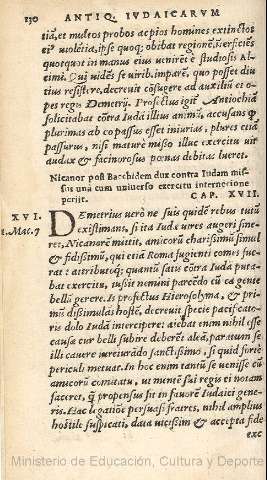 130 ANTIQ. IVDAICARVM
tiā, et multos probos ac pios homines extinctos
ei⁹ violētia, ipse quoq; obibat regionē, īterficiēs
quotquot in manus eius venirēt è studiosis Al-
cimi. Qui vidēs se virib. imparē, quo posset diu
tius resistere, decreuit cōfugere ad auxiliū et o-
pes regis Demetrij. Profectus igit̃ Antiochiā
solicitabat cōtra Iudā illius animū, accusans q
plurimas ab eo passus esset iniurias, plures etiā
passurus, nisi maturè misso illuc exercitu vir
audax & facinorosus pœnas debitas lueret.
Nicanor post Bacchidem dux contra Iudam mis-
sus unà cum universo exercitu internecione
perijt. CAP. XVII.
XVI. DEmetrius uero ne suis quidē rebus tutū
1. Mac. 7 existimans, si ita Iudæ uires augeri sine-
ret, Nicanorē mittit, amicorū charissimū simul
& fidissimū, qui etiā Roma fugienti comes fue-
rat: attributoq; quantū satis cōtra Iudā puta-
bat exercitu, iussit nemini parcēdo cū ea gente
bellū gerere. Is profectus Hierosolyma, & pri-
mū dissimulās hostē, decreuit specie pacificato-
ris dolo Iudā intercipere: aiebat enim nihil esse
causæ cur belli subire deberēt aleā, paratum se
illi cauere iureiurādo sanctissimo, si quid fortè
periculi metuat. In hoc enim tantū se venisse cū
amicorū comitatu, ut mentē sui regis ei notam
faceret, q̃ propensus sit in fauorē Iudaici gene-
ris. Hac legatiōe persuasi fratres, nihil amplius
hostile suspicati, data uicissim & accepta fide
exc
Ministerio de Educación, Cultura y Deporte